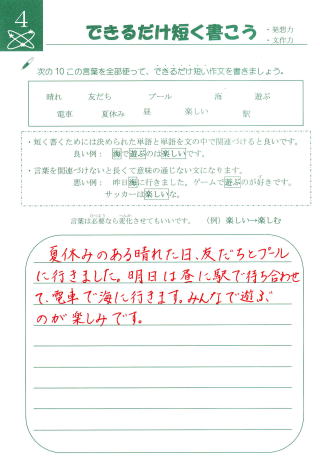 4
できるだけ短く書こう
・発想力
・文作力
次の10この言葉を全部使って、できるだけ短い作文を書きましょう。
晴れ 友だち プール 海 遊ぶ
電車 夏休み 昼 楽しい 駅
・短く書くためには決められた単語と単語を文の中で関連づけると良いです。
良い例： 海で遊ぶのは楽しいです。
・言葉を関連づけないと長くて意味の通じない文になります。
悪い例： 昨日海に行きました。ゲームで遊ぶのが好きです。
サッカーは楽しいな。
言葉は必要なら変化させてもいいです。 （例）楽しい→楽しむ
夏休みのある晴れた日、友だちとプール
に行きました。明日は昼に駅で待ち合わせ
て、電車で海に行きます。みんなで遊ぶ
のが楽しみです。